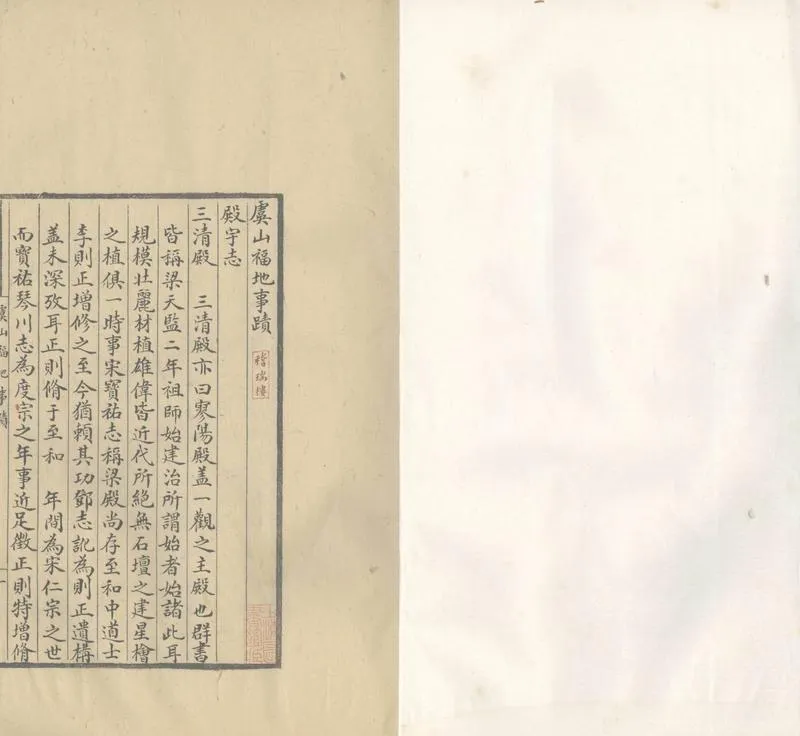 虞山福地事蹟
稽瑞樓
殿宇志
三清殿　三清殿亦曰寥陽殿蓋一觀之主殿也群書
皆稱梁天監二年祖師始建治所謂始者始諸此耳
規模壮麗材植雄偉皆近代所絕無石壇之建星檜
之植俱一時事宋寶祐志稱梁殿尚存至和中道士
李則正增修之至今猶賴其功鄧志訛為則正遺構
盖未深攷耳正則脩于至和　年間為宋仁宗之世
而寶祐琴川志為度宗之年事近足徵正則特增脩
虞山福地事蹟
一